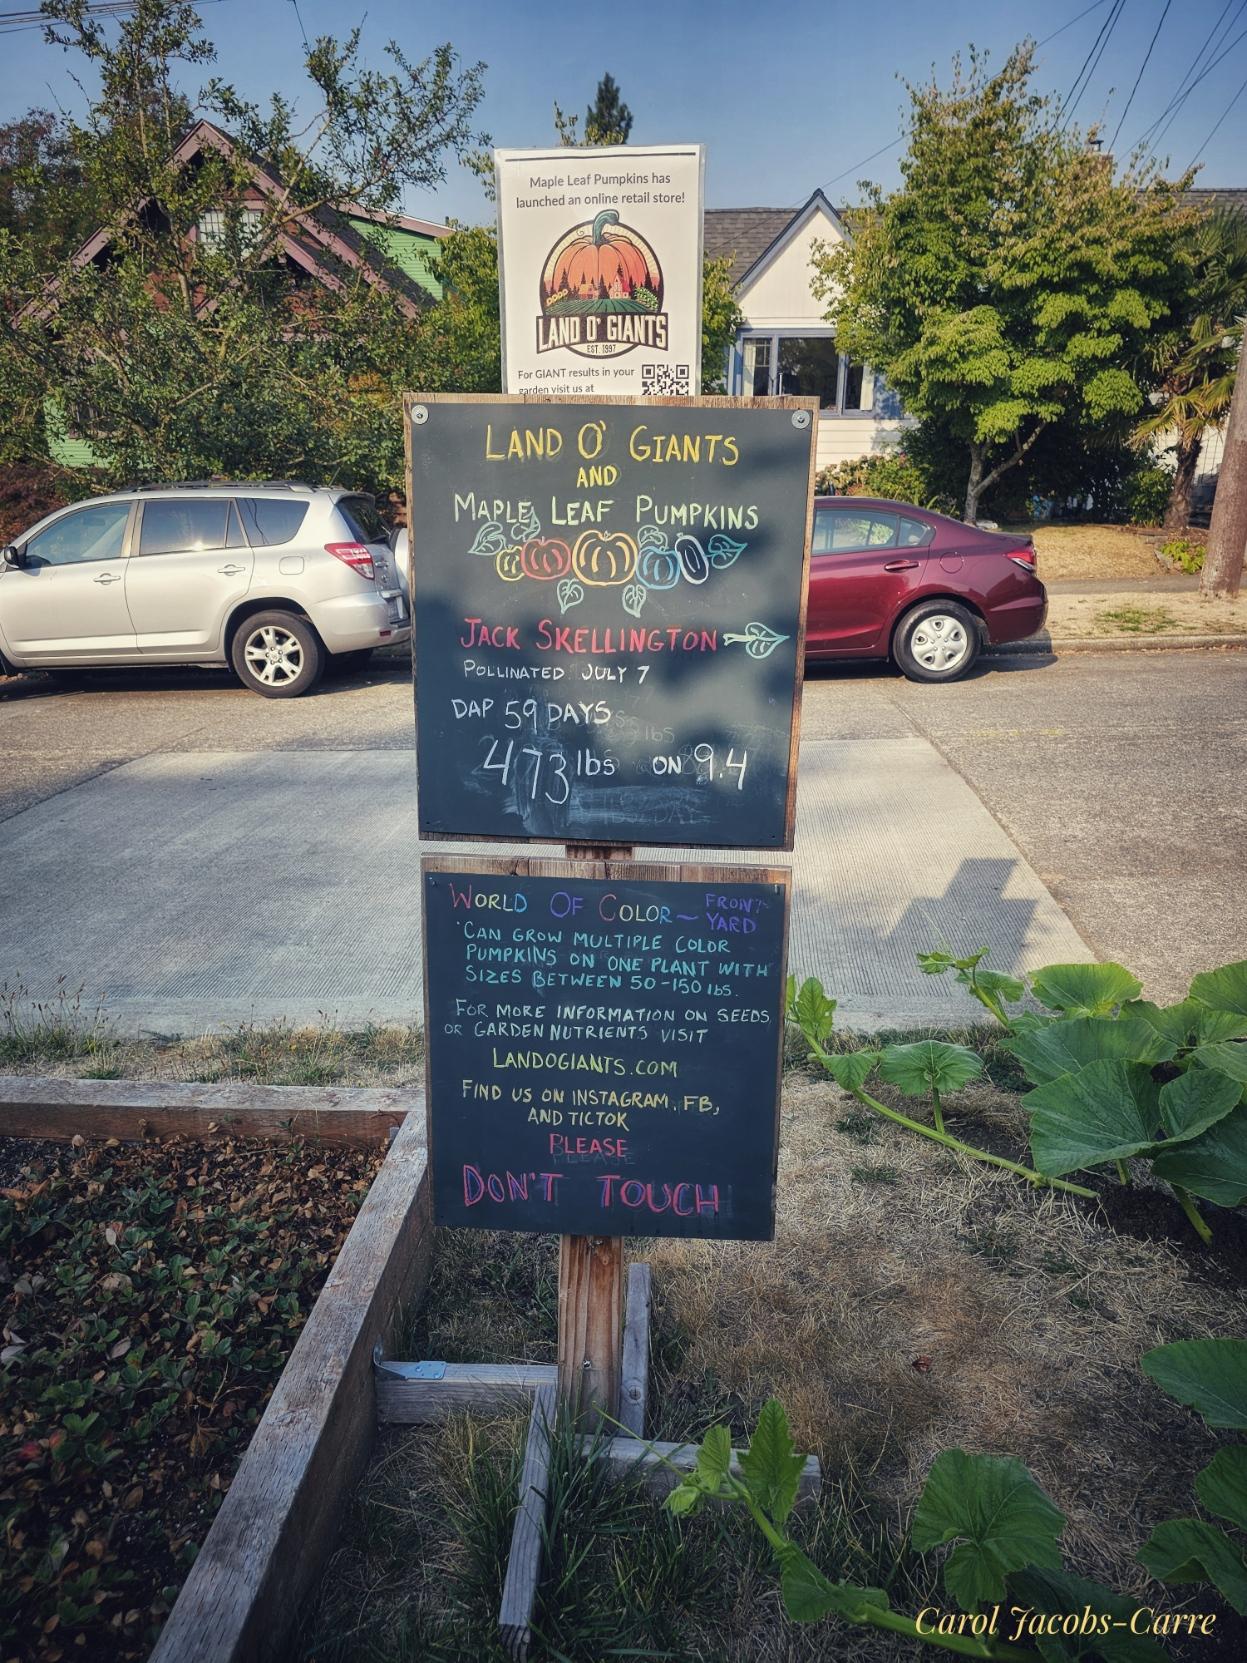 Maple Leaf Pumpkins has
launched an online retail store!
LAND O' GIANTS
EST. 1997
For GIANT results in your
garden visit us at
LAND O' GIANTS
AND
MAPLE LEAF PUMPKINS
JACK SKELLINGTON
POLLINATED JULY 7
DAP 59 DAYS
473 lbs ON 9.4
WORLD OF COLOR ~ FRONT
YARD
CAN GROW MULTIPLE COLOR
PUMPKINS ON ONE PLANT WITH
SIZES BETWEEN 50-150 lbs.
FOR MORE INFORMATION ON SEEDS
OR GARDEN NUTRIENTS VISIT
LANDOGIANTS.COM
FIND US ON INSTAGRAM, FB,
AND TICTOK
PLEASE
DON'T TOUCH
Carol Jacobs-Carre